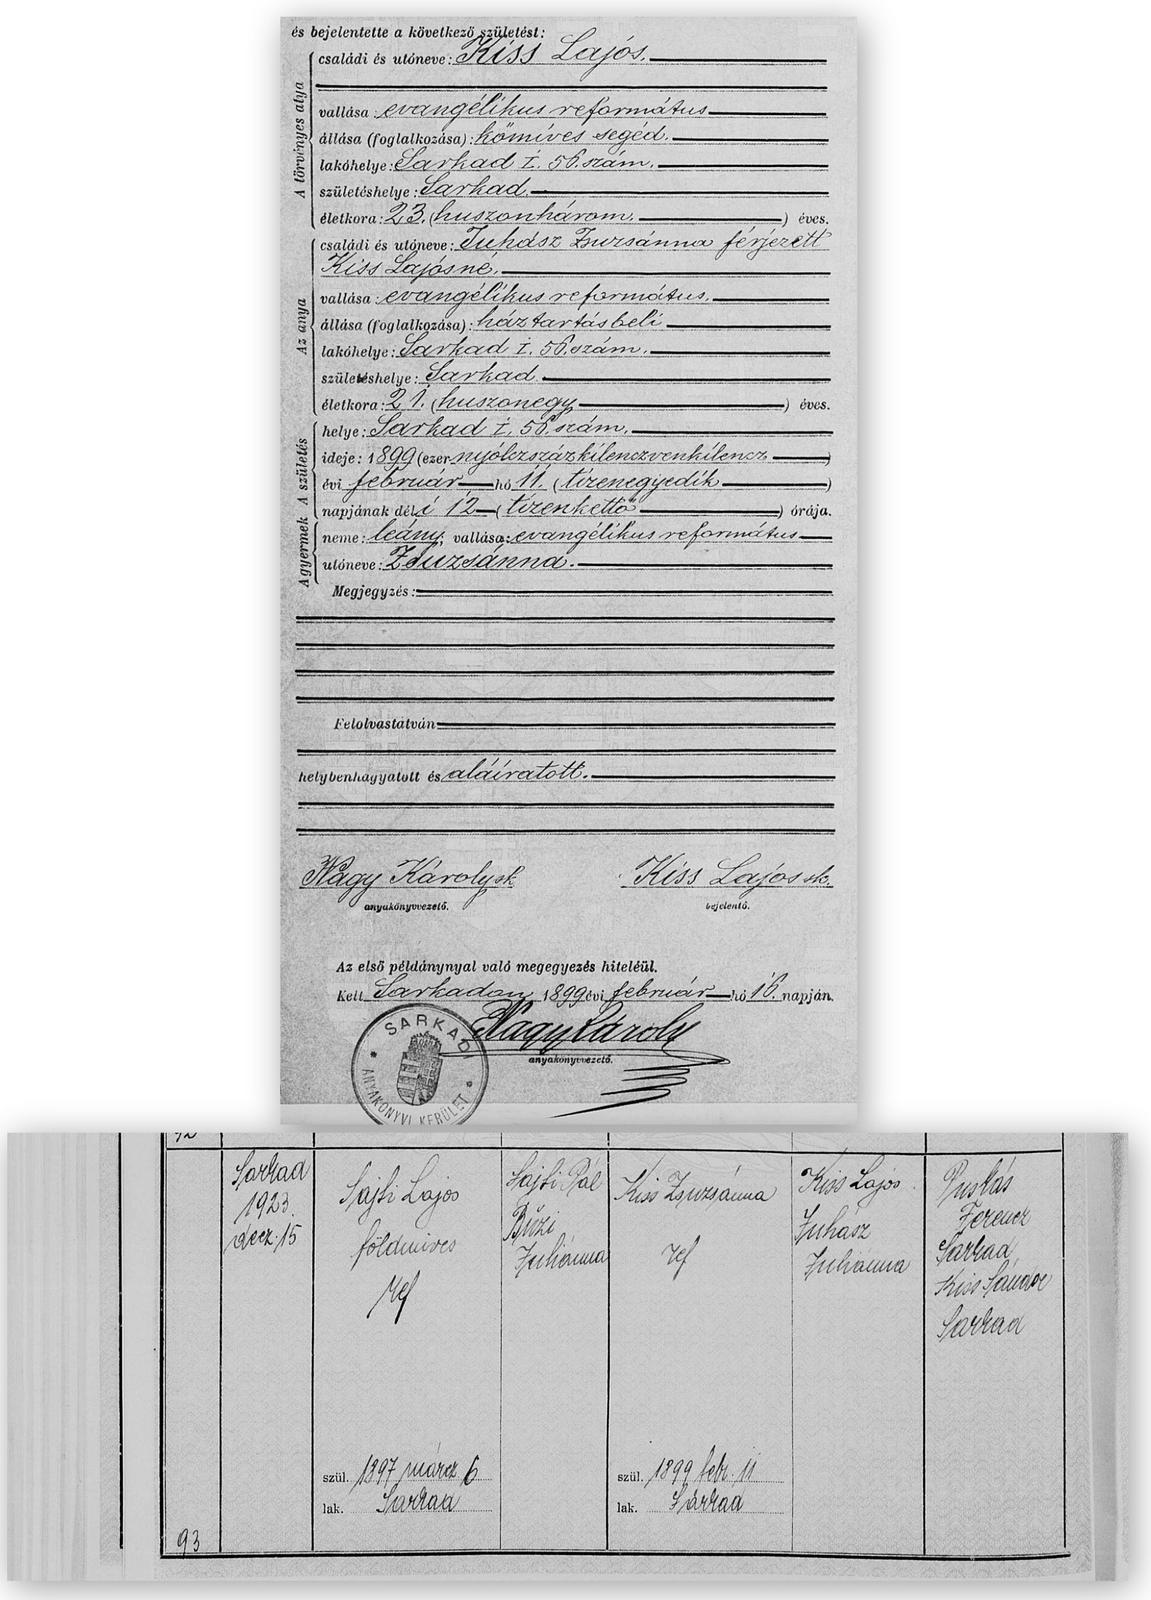 és bejelentette a következő születést:
A törvényes atya
családi és utóneve: Kiss Lajós.
vallása: evangélikus református
állása (foglalkozása): kőmíves segéd.
lakóhelye: Sarkad I. 56. szám.
születéshelye: Sarkad.
életkora: 23. (huszonhárom.) éves.
Az anya
családi és utóneve: Juhász Zsuzsánna férjezett
Kiss Lajósné.
vallása: evangélikus református.
állása (foglalkozása): háztartásbeli
lakóhelye: Sarkad I. 56. szám.
születéshelye: Sarkad.
életkora: 21. (huszonegy) éves.
A születés
helye: Sarkad I. 56. szám.
ideje: 1899 (ezer nyólczszázkilenczvenkilencz)
évi február hó 11. (tizenegyedik)
napjának déli 12 (tizenkettő) órája.
A gyermek
neme: leány; vallása: evangélikus református
utóneve: Zsuzsánna.
Megjegyzés:
Felolvastatván
helybenhagyatott és aláíratott.
Nagy Károly sk Kiss Lajós sk.
anyakönyvvezető. bejelentő.
Az első példánynyal való megegyezés hiteléül.
Kelt Sarkadon, 1899 évi február hó 16. napján.
Nagy Károly
anyakönyvvezető.
SARKADI
ANYAKÖNYVI KERÜLET
92
Sarkad
1923.
decz. 15
Sajti Lajos
földmíves
ref
szül. 1897 márcz 6
lak. Sarkad
Sajti Pál
Búzi
Juhánna
Kiss Zsuzsánna
ref
szül. 1899 febr. 11
lak. Sarkad
Kiss Lajos
Juhász
Juhánna
Puskás
Ferencz
Sarkad
Kiss Sándor
Sarkad
93